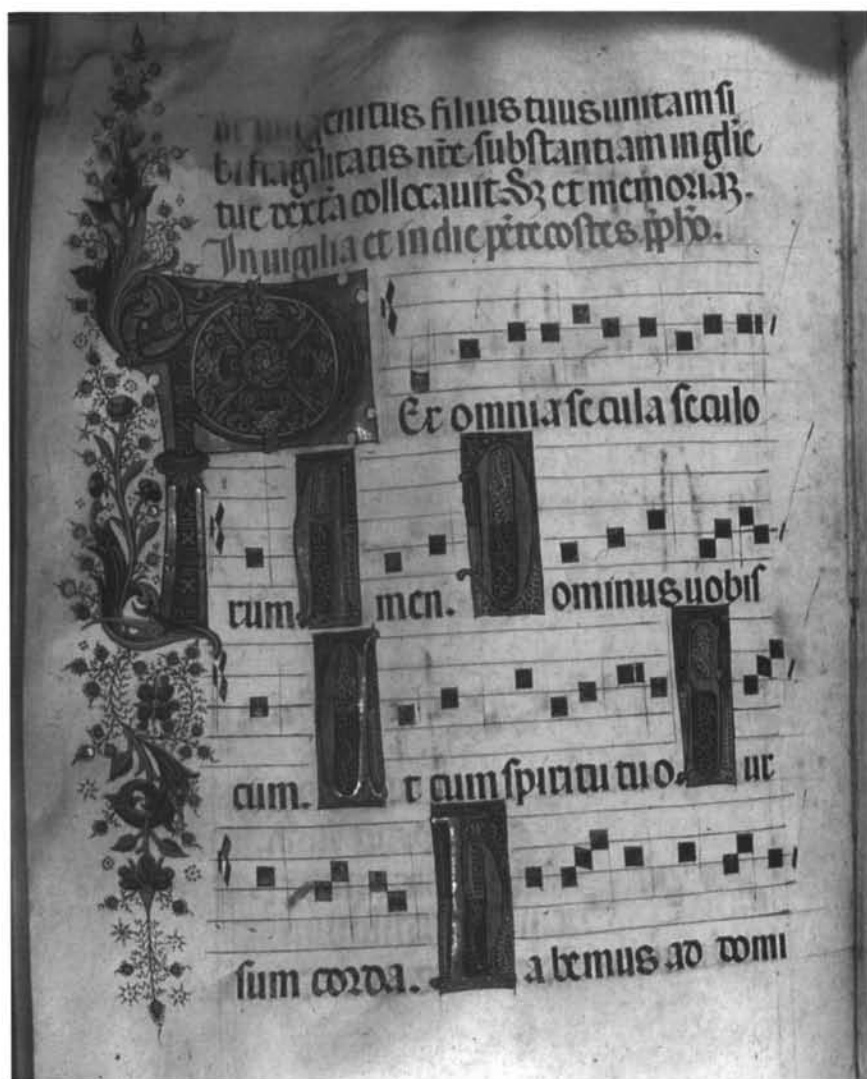 unigenitus filius tuus unitam si
bi fragilitatis nr̃e substantiam in gl̃ie
tue dext̃a collocauit. Sꝫ et memoriaꝝ.
In uigilia et in die pẽtecostes. p̃fatio.
PEr omnia secula seculo
rum. Amen. Dominus uobis
cum. Et cum spiritu tuo. Sur
sum corda. Habemus ad domi